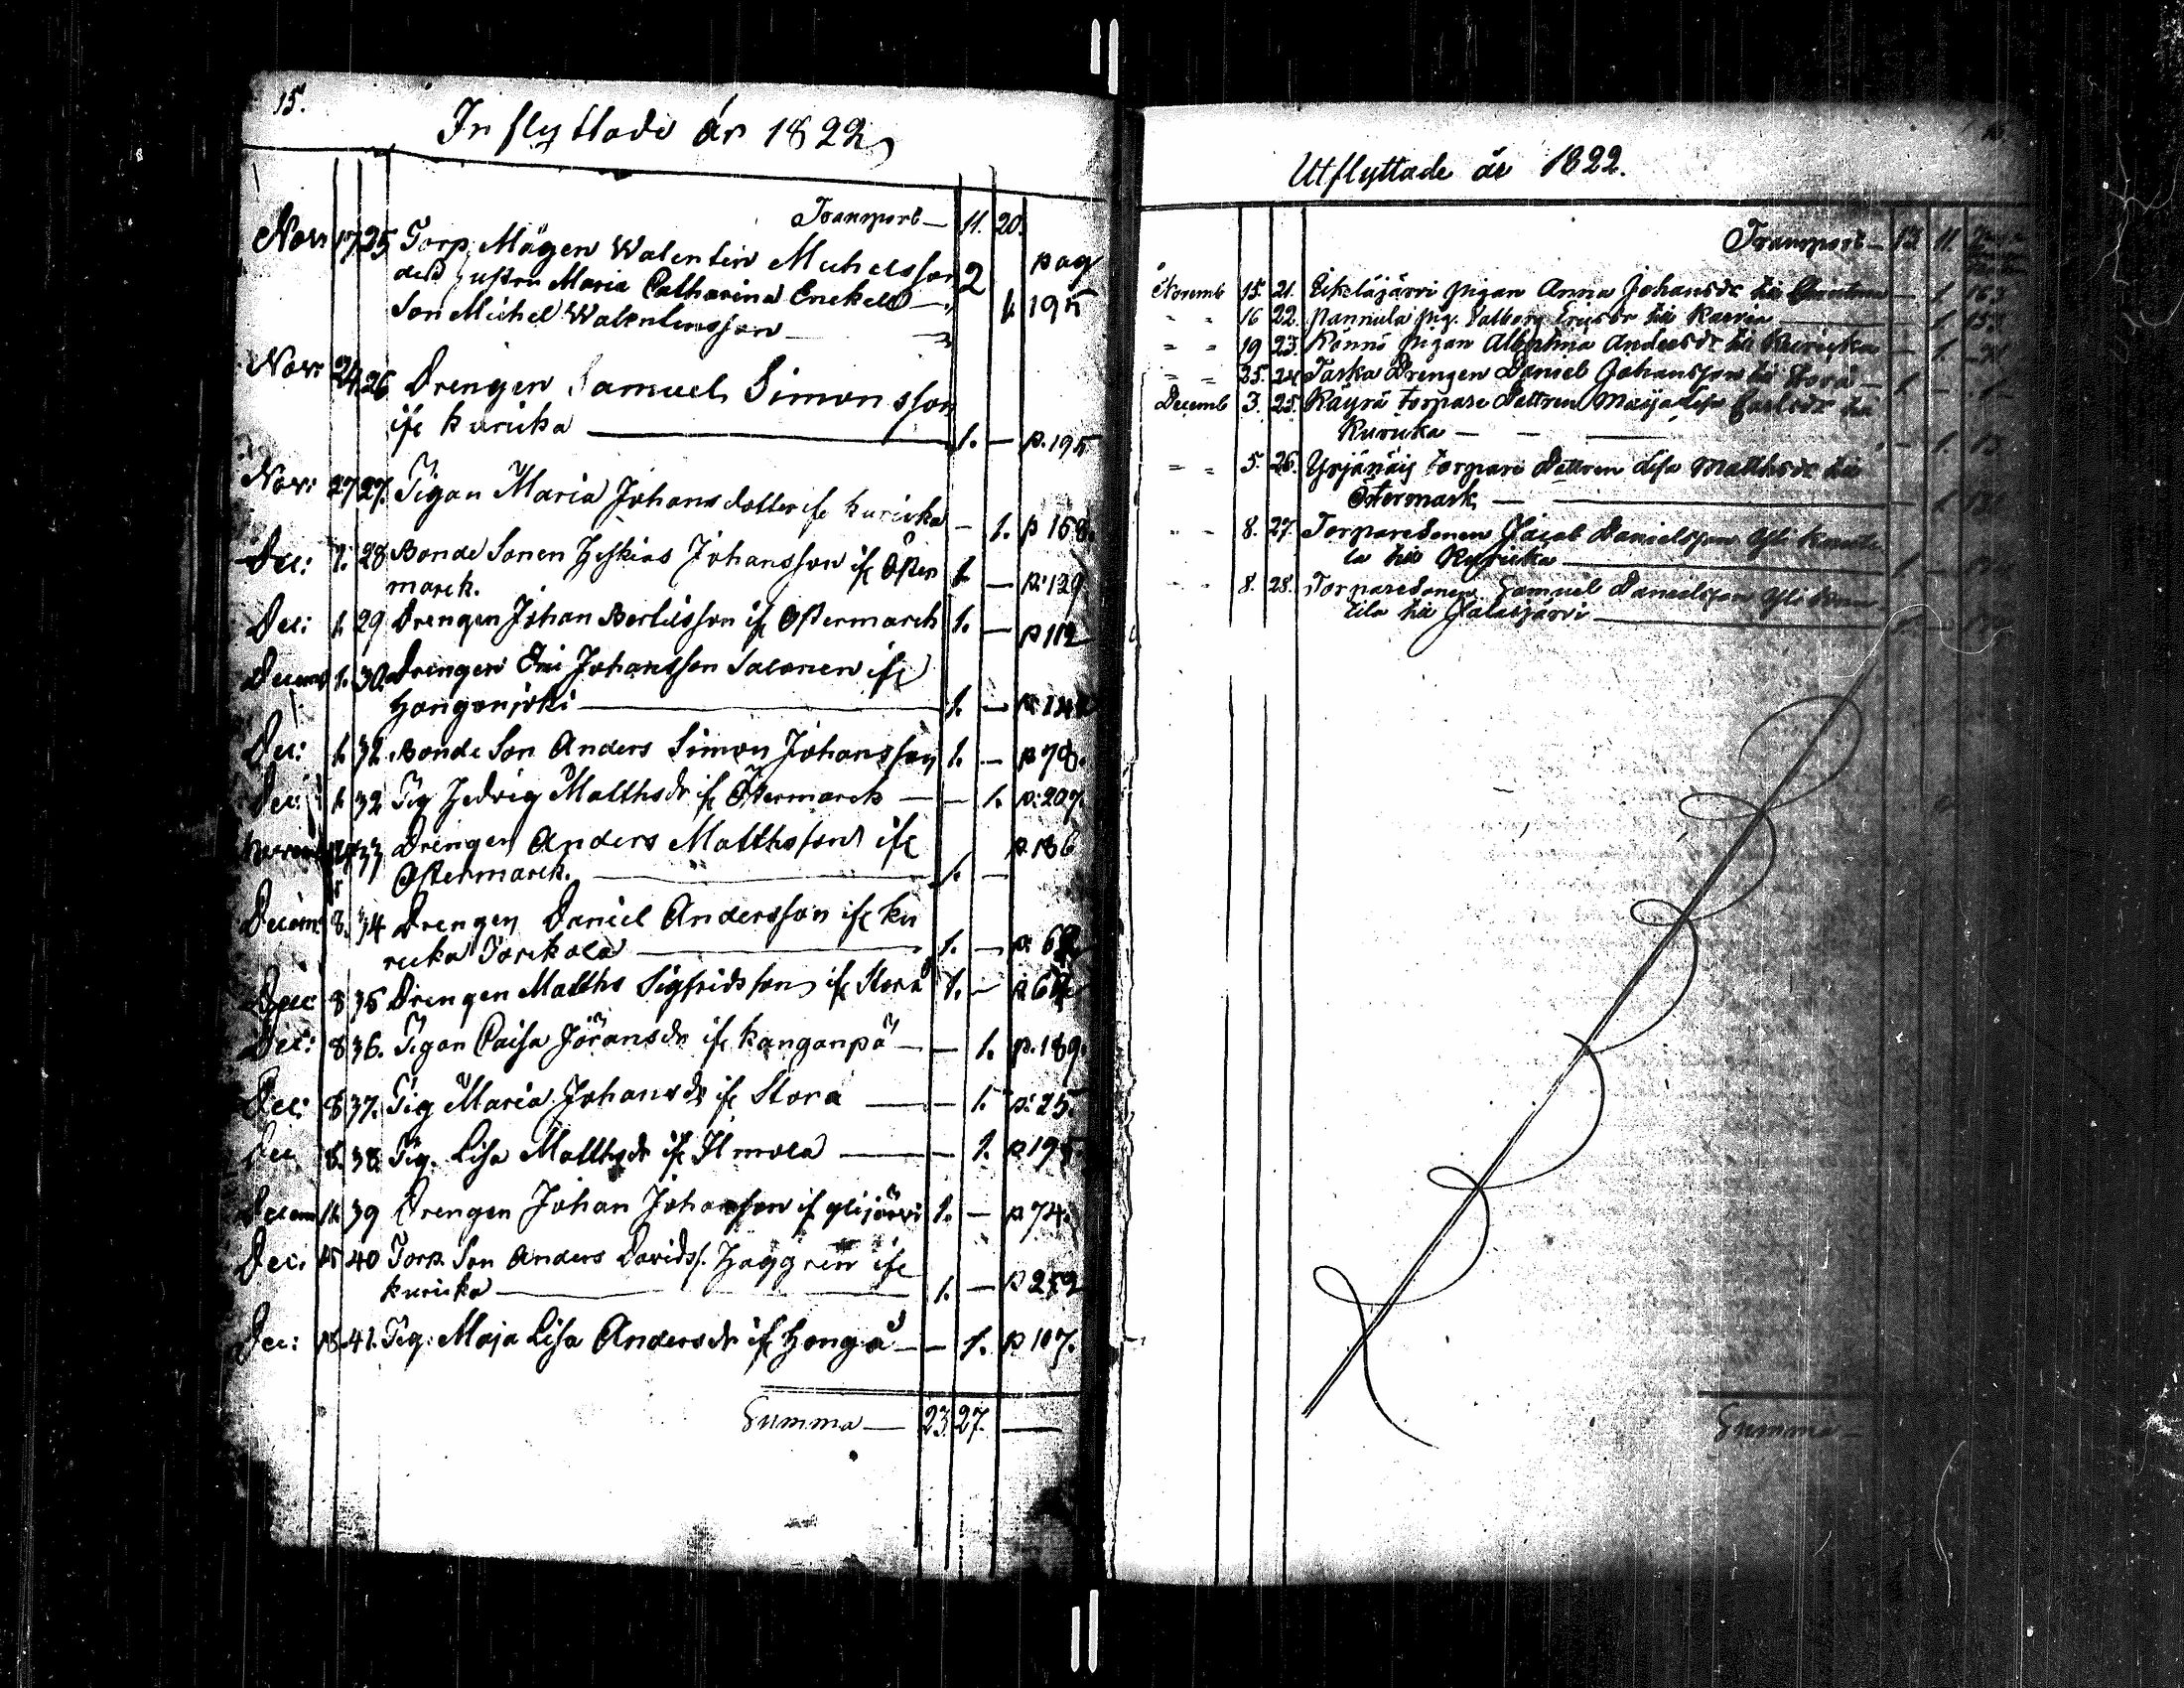 15.
Inflyttade år 1822
Transport — 11. 20.
Nov: 17 25 Torp. Mågen Walentin Michelsson 2 pag
dess hustru Maria Catharina Enekels — 1. 195
Son Michel Walentinsson —
Nov: 24 26 Drengen Samuel Simonsson
ifr kuricka — 1. — p. 195
Nov: 27 27. Pigan Maria Johansdotter ifr kuricka — 1. p 158.
Dec: 1. 28 Bonde Sonen Heskias Johansson ifr Öster 1. — p: 129
marck.
Dec: 1. 29 Drengen Johan Bertilsson ifr Östermarck 1. — p 112
Decem 1. 30 Drengen Johansson Salonen ifr
Hongonjoki — 1. — p.
Dec: 1. 32 Bonde Son Anders Simon Johansson 1. — p 78.
Dec: 1. 32 Pig Hedvig Matthsdr ifr Östermarck — — 1. p: 207.
33 Drengen Anders Matthsson ifr p. 186
Östermarck. — 1. —
Decem 8. 34 Drengen Daniel Andersson ifr ku
ricka Torckola — 1. — p.
Dec 8 35 Drengen Matths Sigfridsson ifr Storå 1. —
Dec: 8 36. Pigan Caisa Jöransdr ifr kanganpä — — 1. p. 189.
Dec: 8 37. Pig Maria Johansdr ifr Stora — — 1. p: 25.
Dec 8. 38 Pig. Lisa Matthsdr ifr Ilmola — — 1. p 195
Decem 39 Drengen Johan Johansson ifr ylijärvi 1. — p 74.
Dec: 15 40 Torp. Son Anders Davidss. Häggren ifr
kuricka — 1. — p 259
Dec: 15. 41. Pig: Maja Lisa Andersdr ifr Hongå — — 1. p 107.
Summa — 23. 27. —
Utflyttade år 1822.
Transport — 13 11.
Novemb 15. 21. Eikeläjärvi pigan Anna Johansdr til — 1. 163
" " 16 22. Pannula pig. Valborg Ericsdr til — 1.
" " 19 23. Könnö pigan Albertina Andersdr til Kuricka — 1.
" " 25. 24. Taska Drengen Daniel Johansson til Storå — 1 —
Decemb 3. 25. Käyrä torpare Dottren Maija Lisa Carlsdr til
Kuricka — 1. 13
" " 5. 26. Yrjänäis torpare Dottren Lisa Matthsdr til
Östermark — 1.
" " 8. 27. Torparesonen Jacob Danielsson Yli Knuti
la til Kuricka — 1 —
" " 8. 28. Torparesonen Samuel Danielsson Yli Knu
tila til Jalasjärvi — 1 —
Summa —